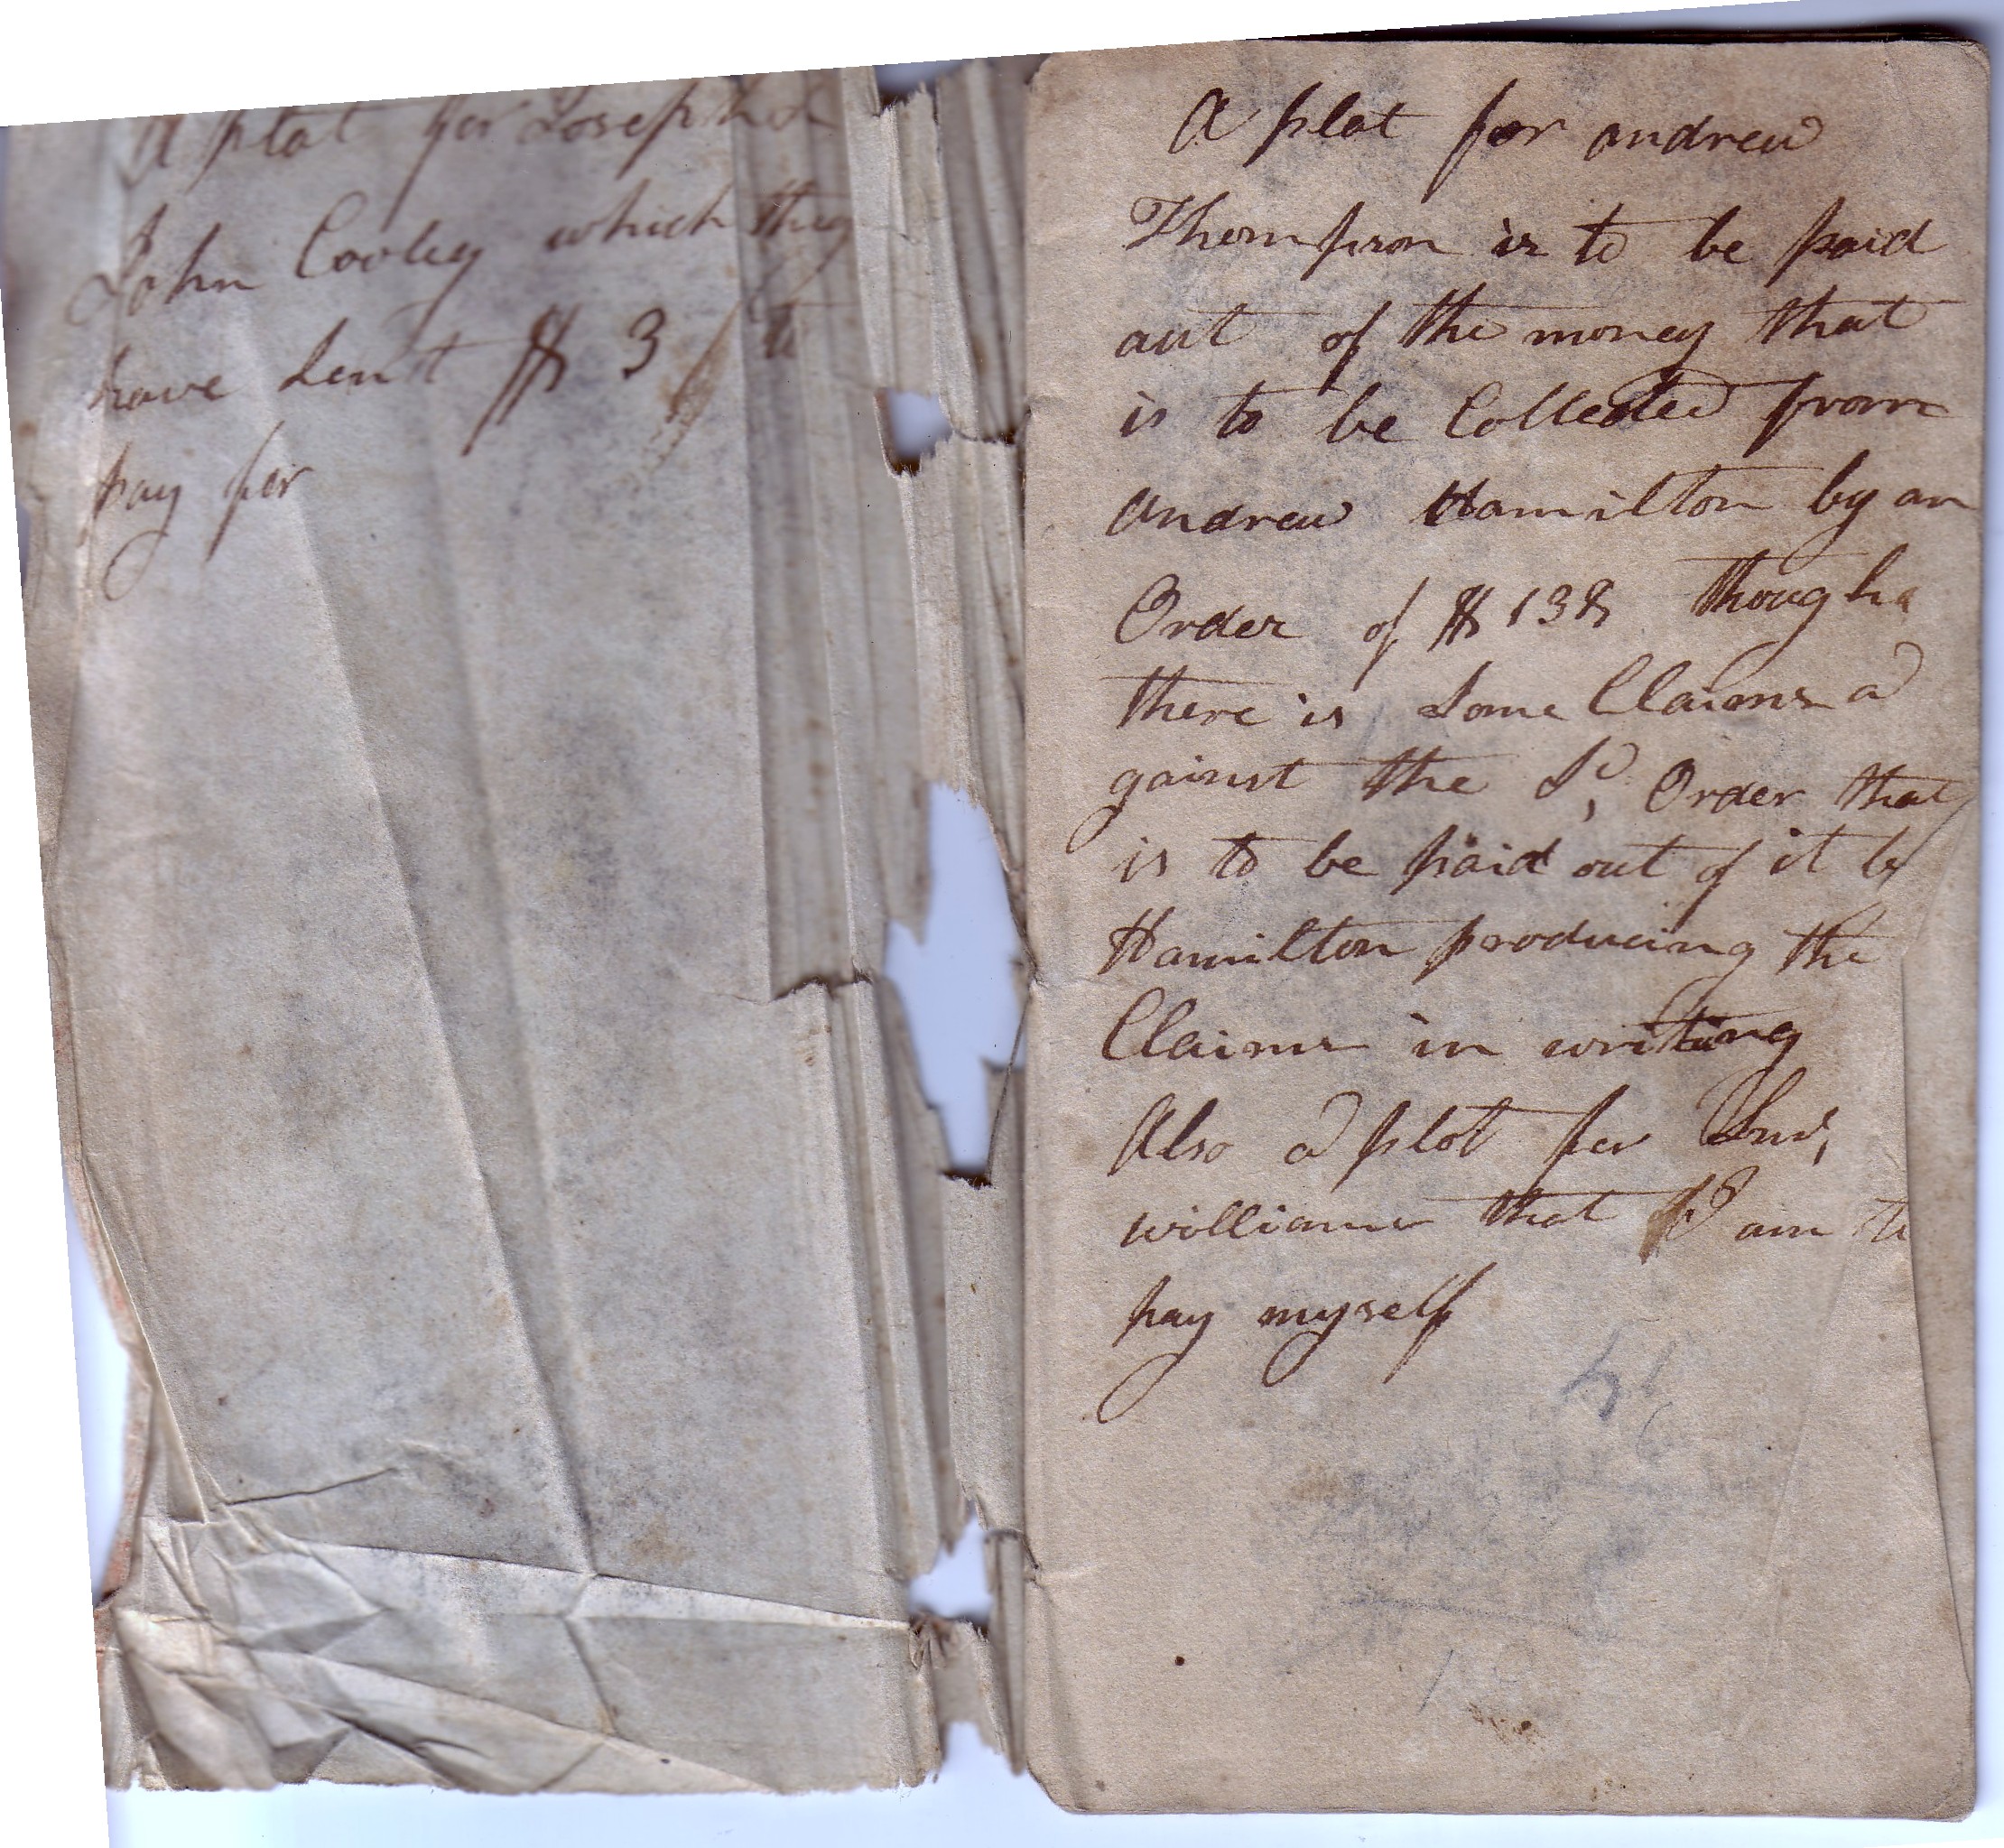 A plat for Joseph &
John Cooley which they
have sent $ 3 to
pay for
A plat for andrew
Thompson is to be paid
out of the money that
is to be Collected from
andrew Hamilton by an
Order of $ 138 though
there is some Claims a
gainst the Sd, Order that
is to be paid out of it by
Hamilton producing the
Claims in writing
Also a plot for
williams that I am to
pay myself